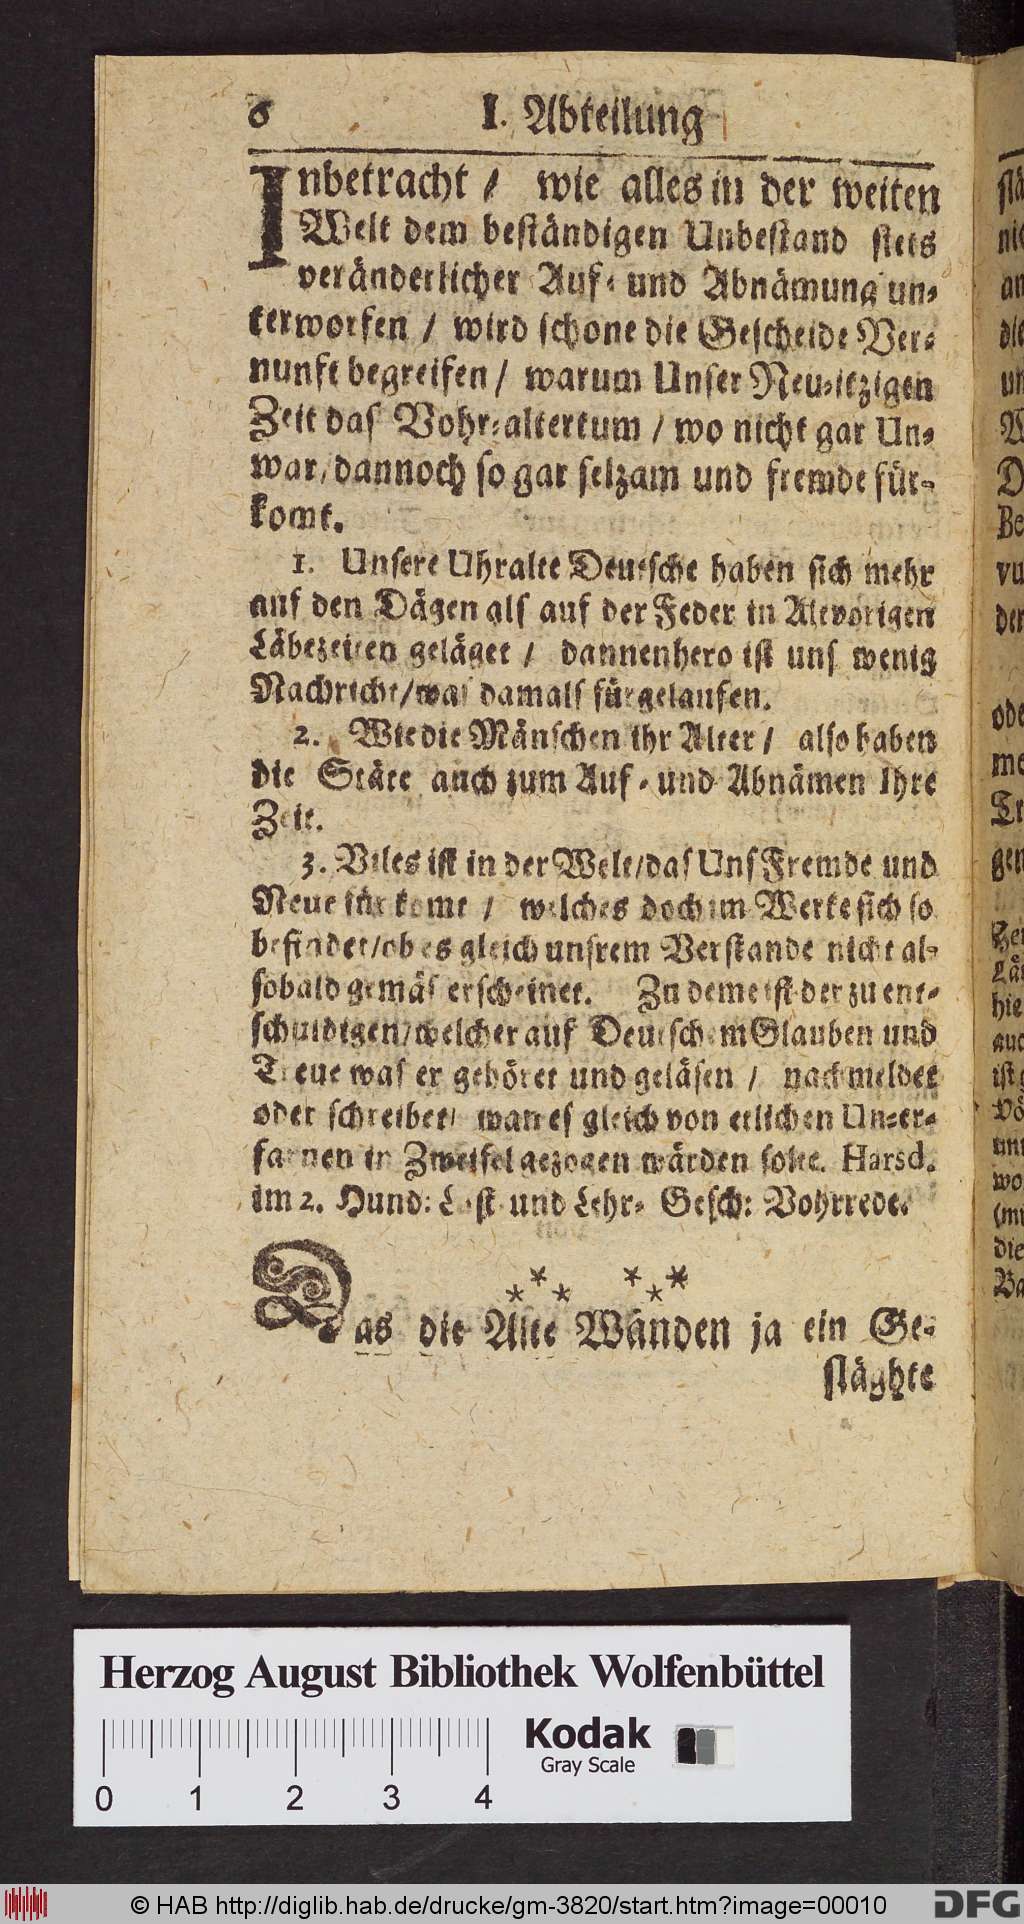 6 I. Abteilung
Inbetracht / wie alles in der weiten
Welt dem beständigen Unbestand stets
veränderlicher Auf- und Abnämung un-
terworfen / wird schone die Gescheide Ver-
nunft begreifen / warum Unser Neu-itzigen
Zeit das Vohr-altertum / wo nicht gar Un-
war / dannoch so gar selzam und fremde für-
komt.
1. Unsere Uhralte Deutsche haben sich mehr
auf den Dägen als auf der Feder in Altvorigen
Läbezeiten geläget / dannenhero ist uns wenig
Nachricht / was damals fürgelaufen.
2. Wie die Mänschen ihr Alter / also haben
die Stäte auch zum Auf- und Abnämen Ihre
Zeit.
3. Viles ist in der Welt / das Uns Fremde und
Neue für komt / welches doch im Werke sich so
befindet / ob es gleich unsrem Verstande nicht al-
sobald gemäs erscheinet. Zu deme ist der zu ent-
schuldigen / welcher auf Deutschem Glauben und
Treue was er gehöret und geläsen / nachmeldet
oder schreibet / wan es gleich von etlichen Un-er-
farnen in Zweifel gezogen wärden solte. Harsd.
im 2. Hund: Lust- und Lehr- Gesch: Vohrrede.
* * * * * *
Das die Alte Wänden ja ein Ge-
släghte
Herzog August Bibliothek Wolfenbüttel
0 1 2 3 4
Kodak
Gray Scale
© HAB http://diglib.hab.de/drucke/gm-3820/start.htm?image=00010
DFG